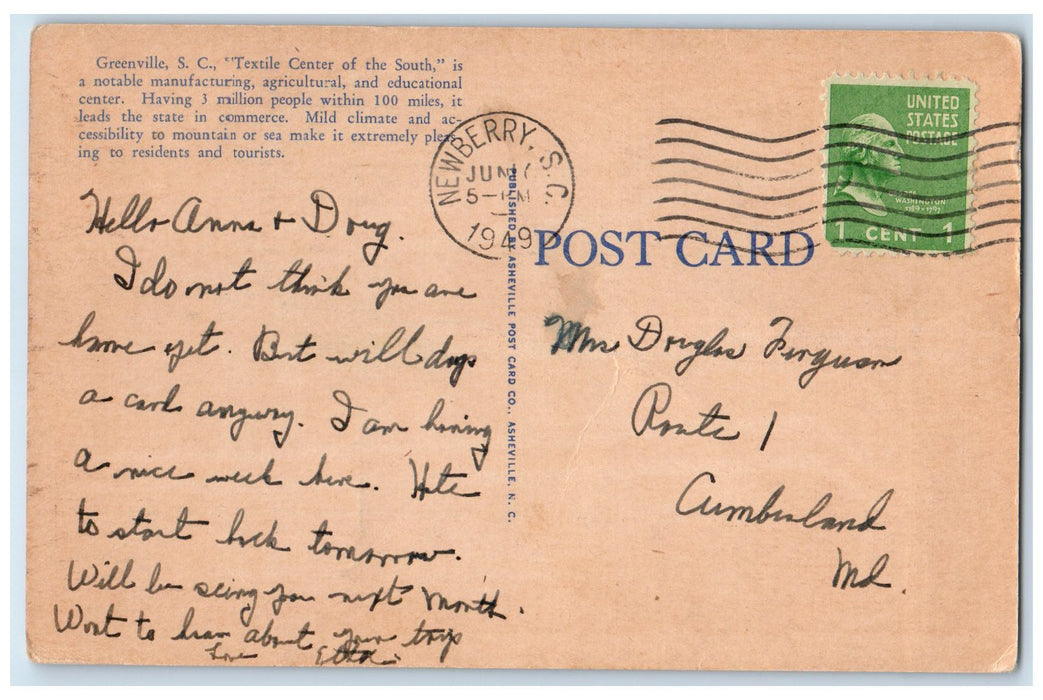 Greenville, S. C., "Textile Center of the South," is
a notable manufacturing, agricultural, and educational
center. Having 3 million people within 100 miles, it
leads the state in commerce. Mild climate and ac-
cessibility to mountain or sea make it extremely pleas-
ing to residents and tourists.
Hello Anna + Doug.
I do not think you are
home yet. But will drop
a card anyway. I am having
a nice week here. Hate
to start back tomorrow.
Will be seing you next month.
Want to hear about your trip
Love Etta.
NEWBERRY, S.C.
JUN
5-PM
1949
PUBLISHED BY ASHEVILLE POST CARD CO., ASHEVILLE, N. C.
POST CARD
UNITED
STATES
POSTAGE
WASHINGTON
1789-1797
1 CENT 1
Mrs Douglas Ferguson
Route 1
Cumberland
Md.